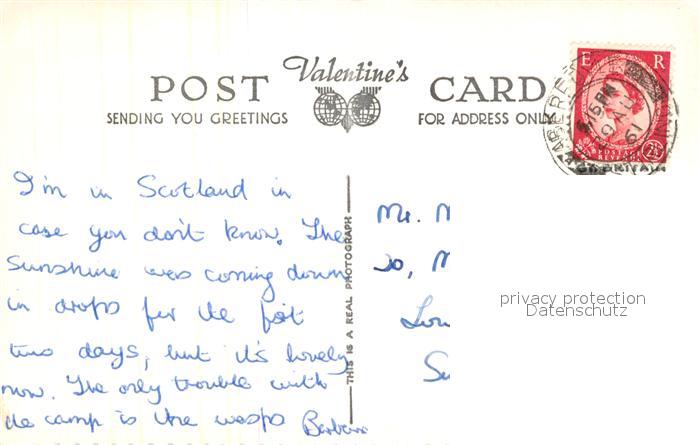 POST Valentine's CARD
SENDING YOU GREETINGS FOR ADDRESS ONLY
E R
6.15PM
61
POSTAGE
REVENUE
2½
I'm in Scotland in
case you don't know. The
sunshine was coming down
in drops for the first
two days, but it's lovely
now. The only trouble with
the camp is the wasps Barbara
THIS IS A REAL PHOTOGRAPH
Mr. M
20, M
privacy protection
Datenschutz